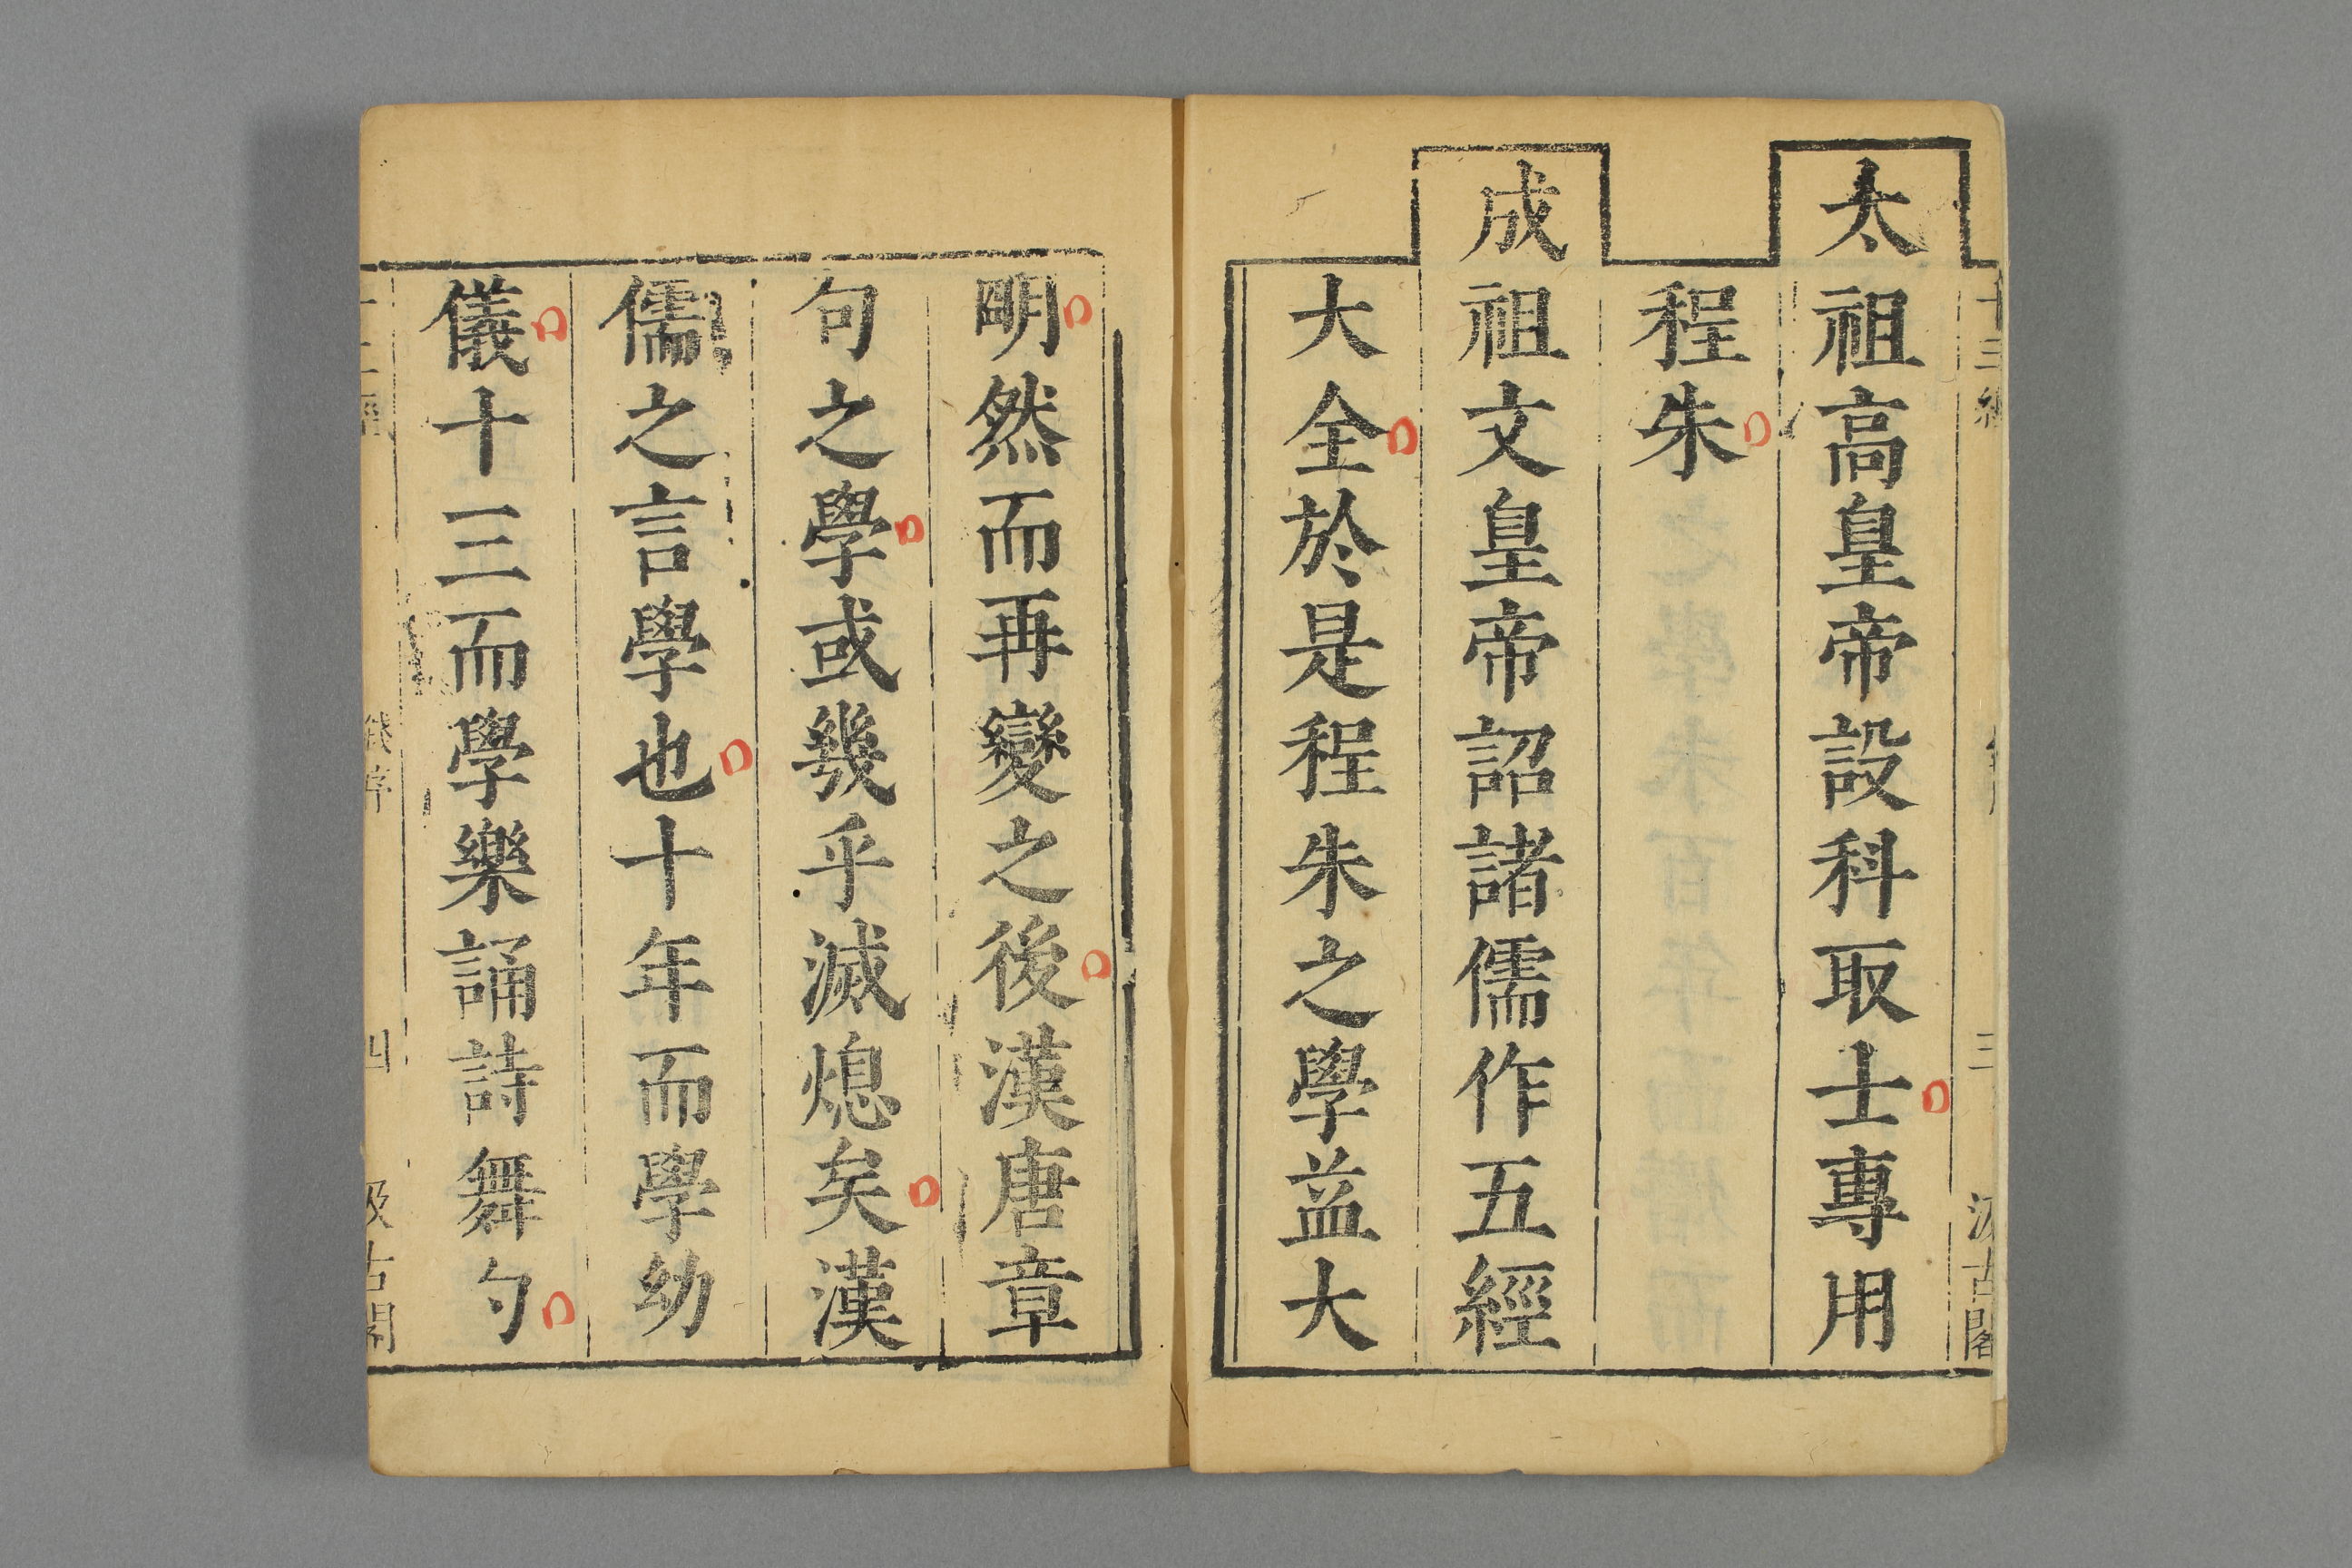 太祖高皇帝設科取士專用
程朱
成祖文皇帝詔諸儒作五經
大全於是程朱之學益大
明然而再變之後漢唐章
句之學或幾乎滅熄矣漢
儒之言學也十年而學幼
儀十三而學樂誦詩舞勺